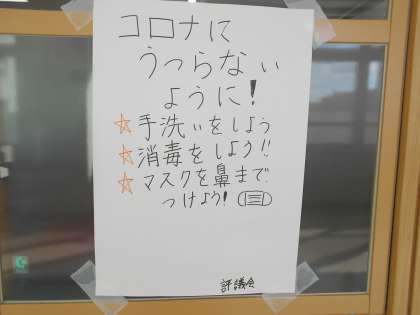 コロナに
うつらない
ように!
☆手洗いをしよう
☆消毒をしよう!!
☆マスクを鼻まで
つけよう!
評議会